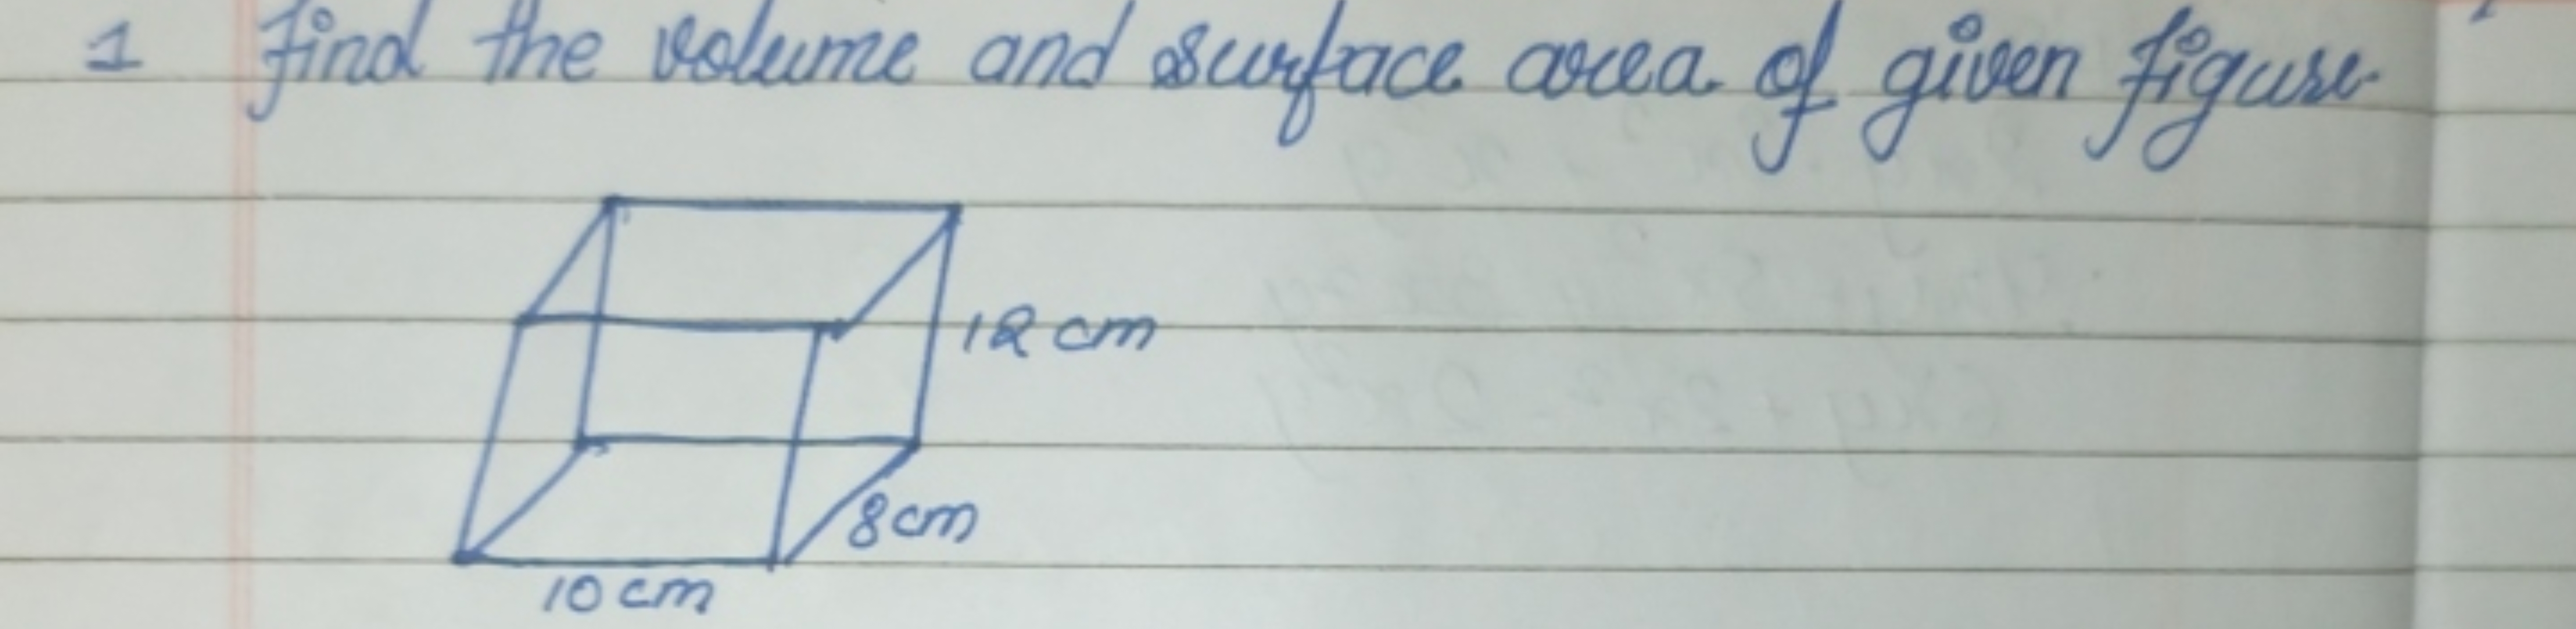 1 find the volume and surface area of given figure
12 cm
8cm
10 cm